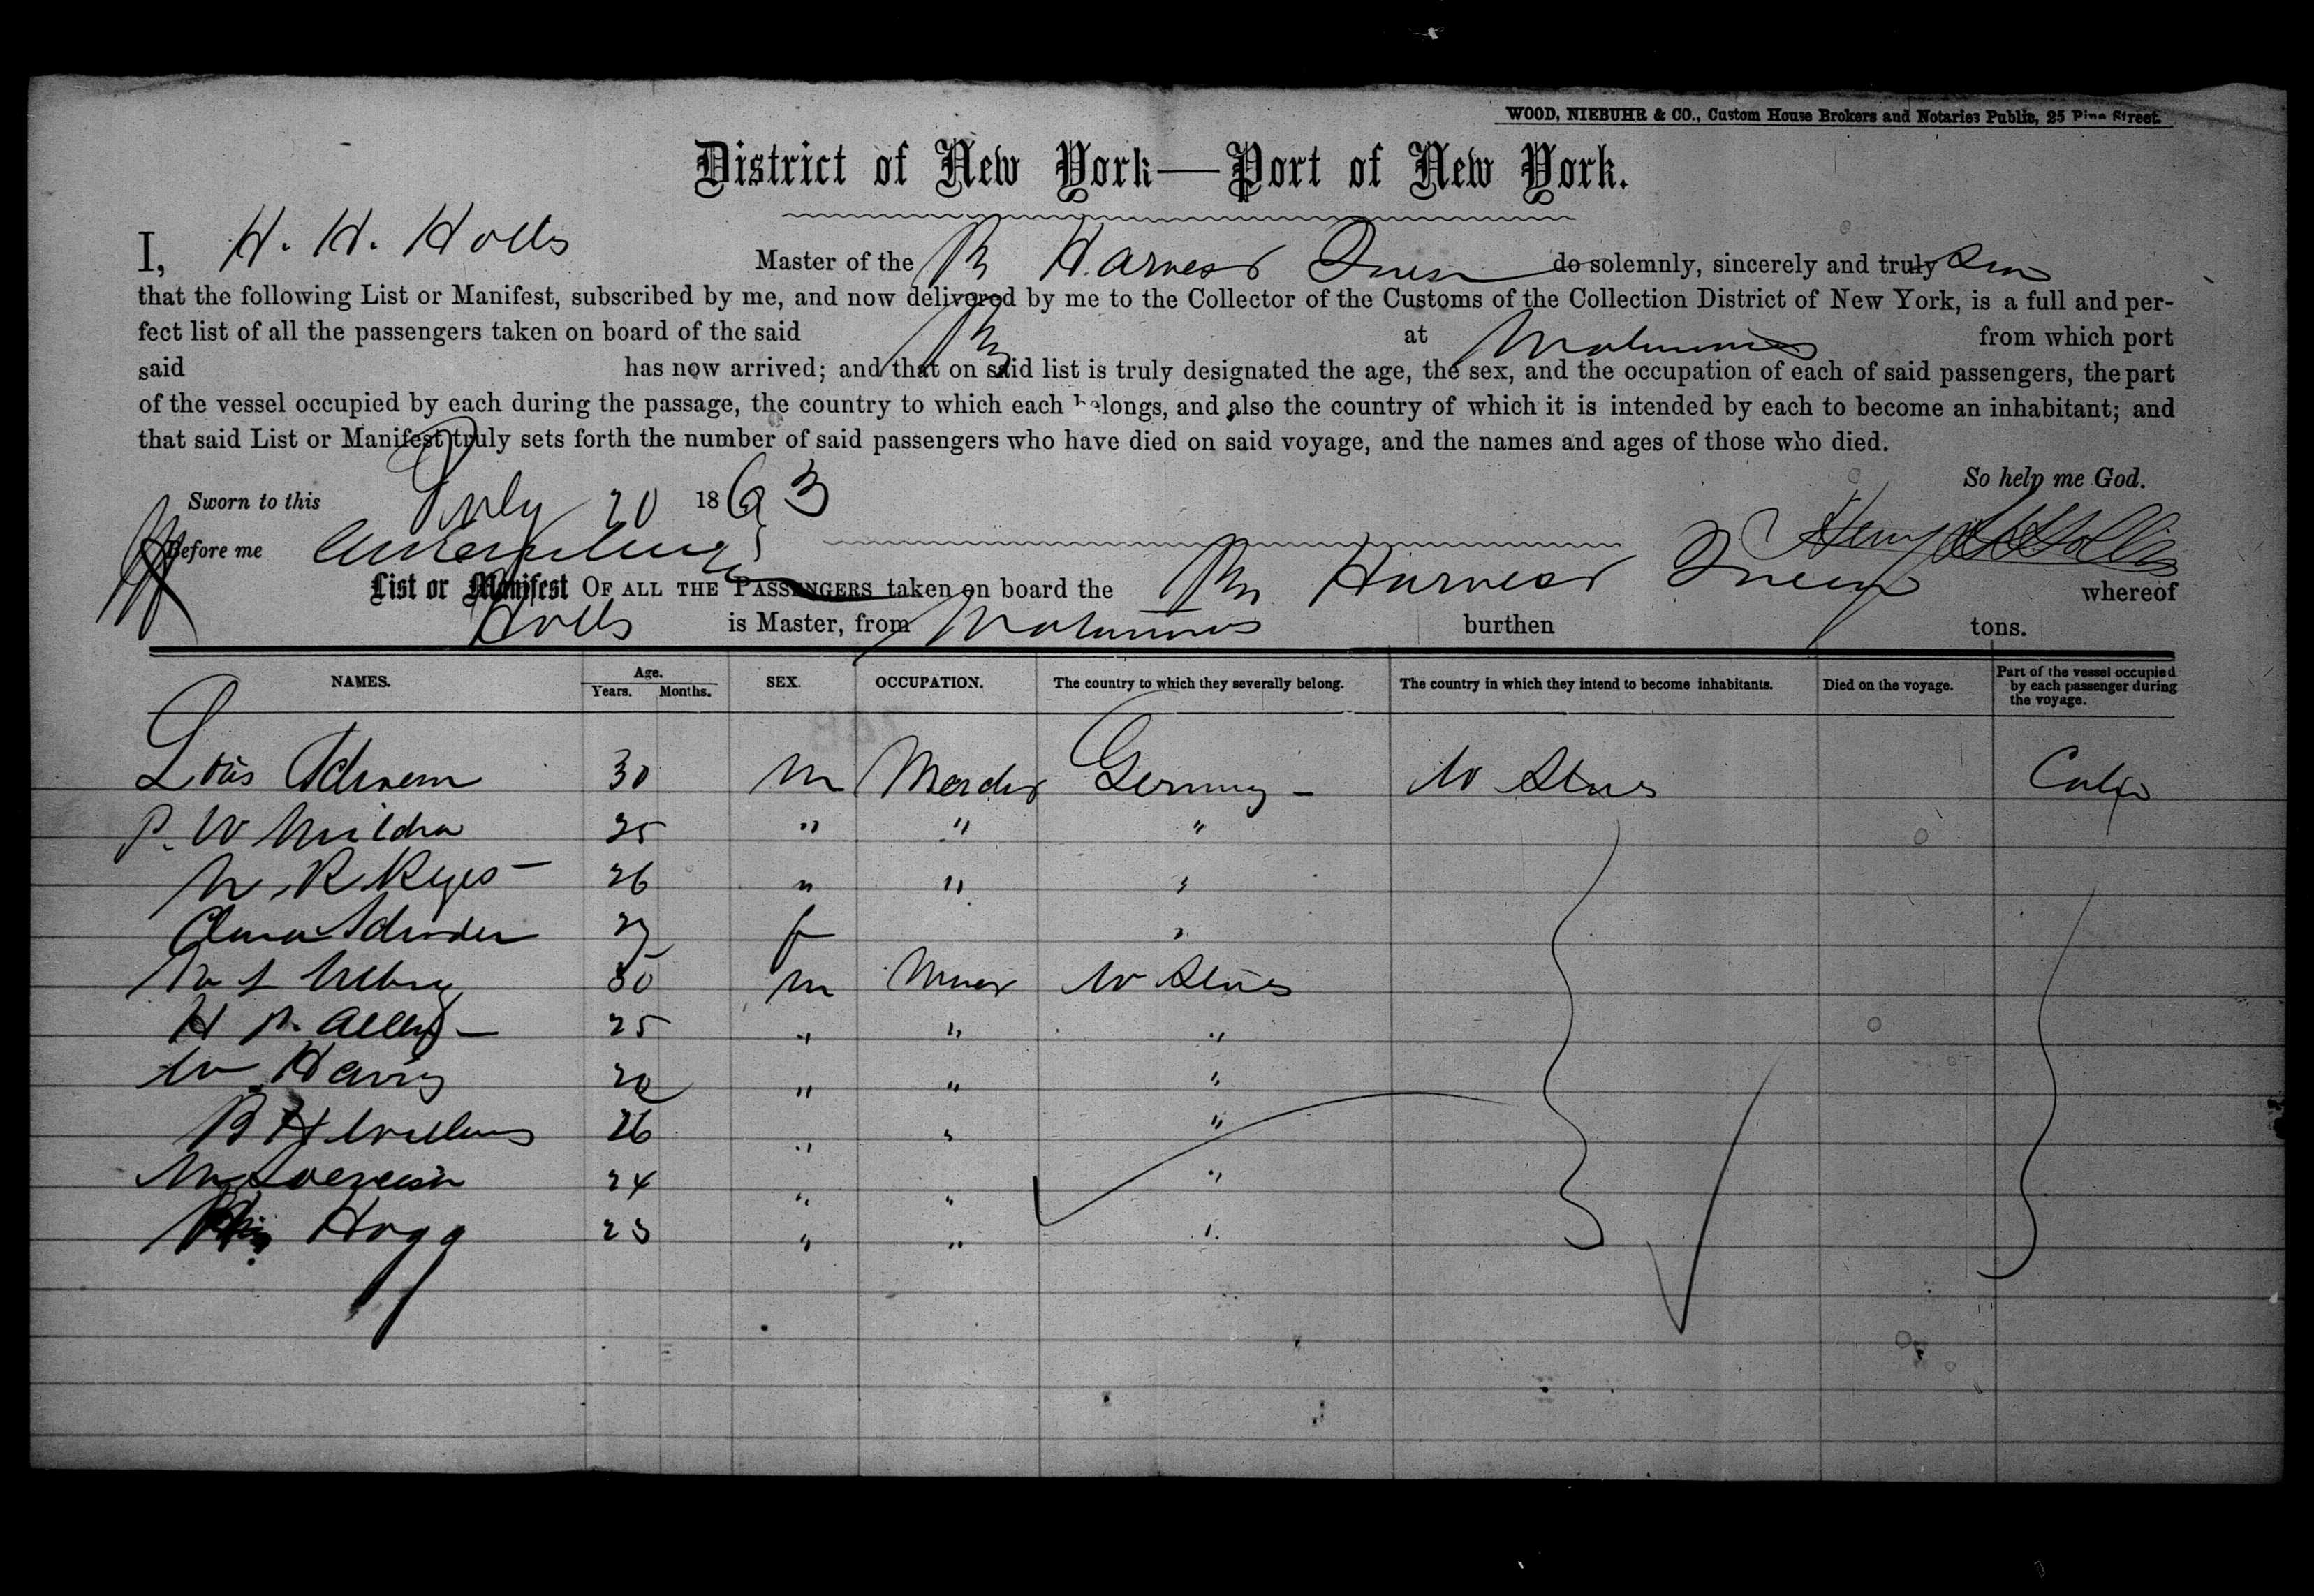 WOOD, NIEBUHR & CO., Custom House Brokers and Notaries Public, 25 Pine Street.
District of New York—Port of New York.
I, H. H. Holls Master of the Br Harvest Queen do solemnly, sincerely and truly
that the following List or Manifest, subscribed by me, and now delivered by me to the Collector of the Customs of the Collection District of New York, is a full and per-
fect list of all the passengers taken on board of the said Br at Matamoras from which port
said has now arrived; and that on said list is truly designated the age, the sex, and the occupation of each of said passengers, the part
of the vessel occupied by each during the passage, the country to which each belongs, and also the country of which it is intended by each to become an inhabitant; and
that said List or Manifest truly sets forth the number of said passengers who have died on said voyage, and the names and ages of those who died.
So help me God.
Sworn to this July 20 1863
Before me Henry
List or Manifest OF ALL THE PASSENGERS taken on board the Br Harvest Queen whereof
Holls is Master, from Matamoras burthen tons.
NAMES. Age. Years. Months. SEX. OCCUPATION. The country to which they severally belong. The country in which they intend to become inhabitants. Died on the voyage. Part of the vessel occupied by each passenger during the voyage.
Louis 30 m Germany - U States
P. W 25 " " "
R Keyes 26 " " "
Clara 27 f "
30 m U States
H P. Allen 25 " " "
Harris 20 " " "
B H Williams 26 " " "
24 " " "
Hogg 23 " " "